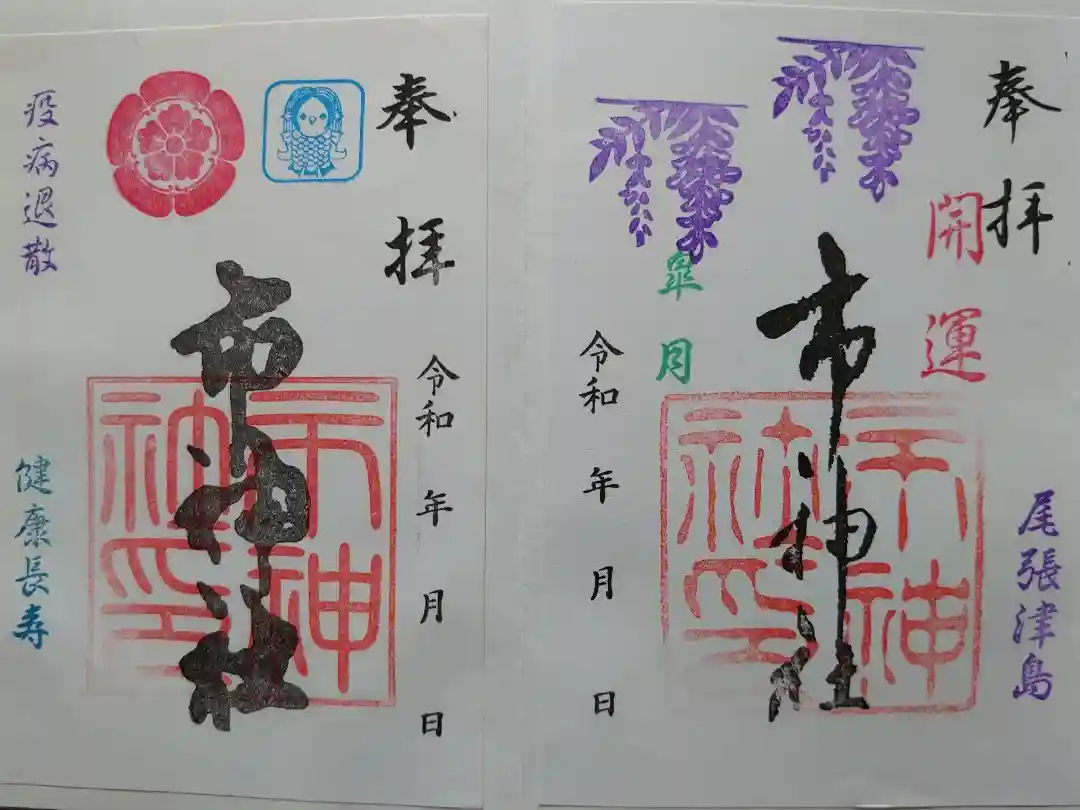 奉拝
開運
尾張津島
市神社
市神社印
皐月
令和 年 月 日
奉拝
令和 年 月 日
市神社
市神社印
疫病退散
健康長寿